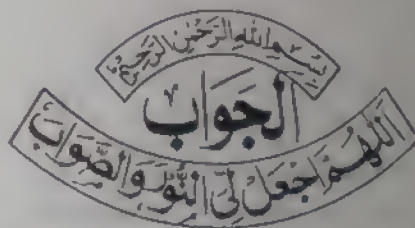 بِسْمِ اللهِ الرَّحْمٰنِ الرَّحِيْمِ
الجواب
اَللّٰهُمَّ اجْعَلْ لِیَ النُّوْرَ وَالصَّوَابَ